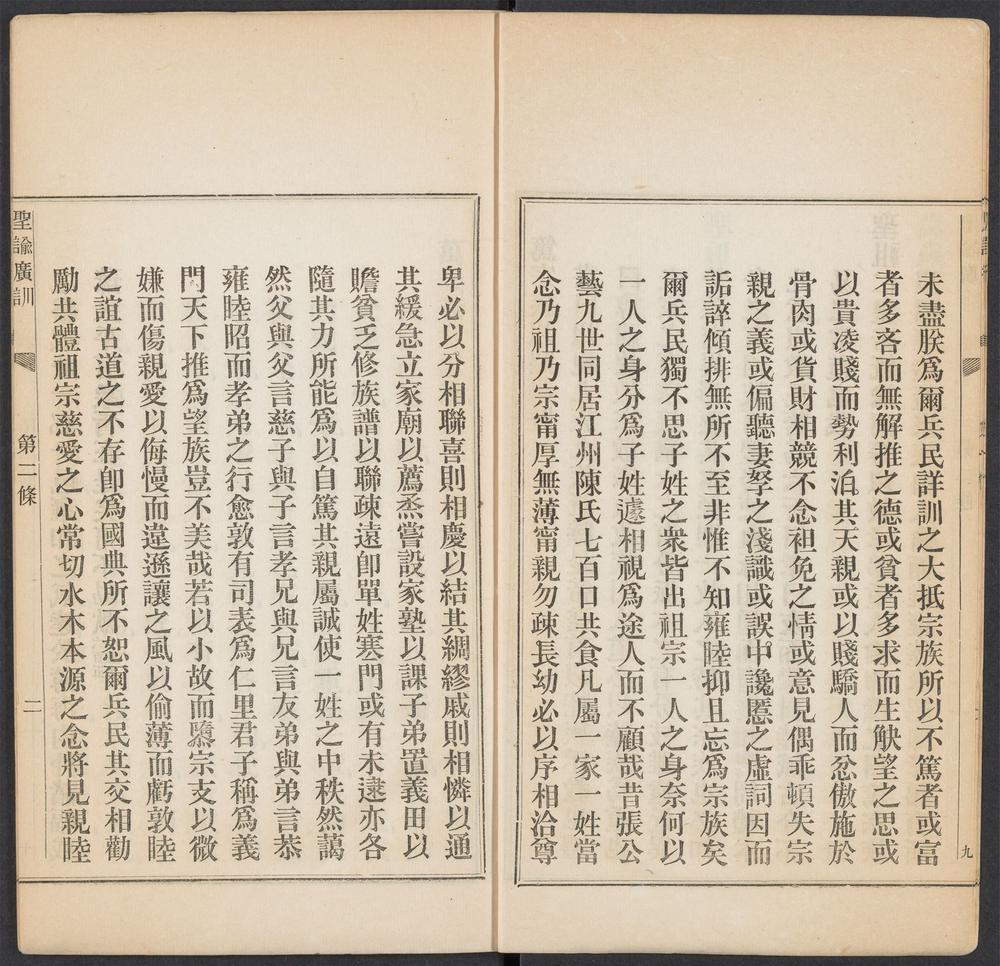 未盡朕爲爾兵民詳訓之大抵宗族所以不篤者或富
者多吝而無解推之德或貧者多求而生觖望之思或
以貴凌賤而勢利汨其天親或以賤驕人而忿傲施於
骨肉或貨財相競不念袒免之情或意見偶乖頓失宗
親之義或偏聽妻孥之淺識或誤中讒慝之虛詞因而
詬誶傾排無所不至非惟不知雍睦抑且忘爲宗族矣
爾兵民獨不思子姓之衆皆出祖宗一人之身奈何以
一人之身分爲子姓遽相視爲途人而不顧哉昔張公
藝九世同居江州陳氏七百口共食凡屬一家一姓當
念乃祖乃宗甯厚無薄甯親勿疎長幼必以序相洽尊
九
卑必以分相聯喜則相慶以結其綢繆戚則相憐以通
其緩急立家廟以薦烝嘗設家塾以課子弟置義田以
贍貧乏修族譜以聯疎遠卽單姓寒門或有未逮亦各
隨其力所能爲以自篤其親屬誠使一姓之中秩然藹
然父與父言慈子與子言孝兄與兄言友弟與弟言恭
雍睦昭而孝弟之行愈敦有司表爲仁里君子稱爲義
門天下推爲望族豈不美哉若以小故而隳宗支以微
嫌而傷親愛以侮慢而違遜讓之風以偷薄而虧敦睦
之誼古道之不存卽爲國典所不恕爾兵民其交相勸
勵共體祖宗慈愛之心常切水木本源之念將見親睦
聖諭廣訓
第二條
二